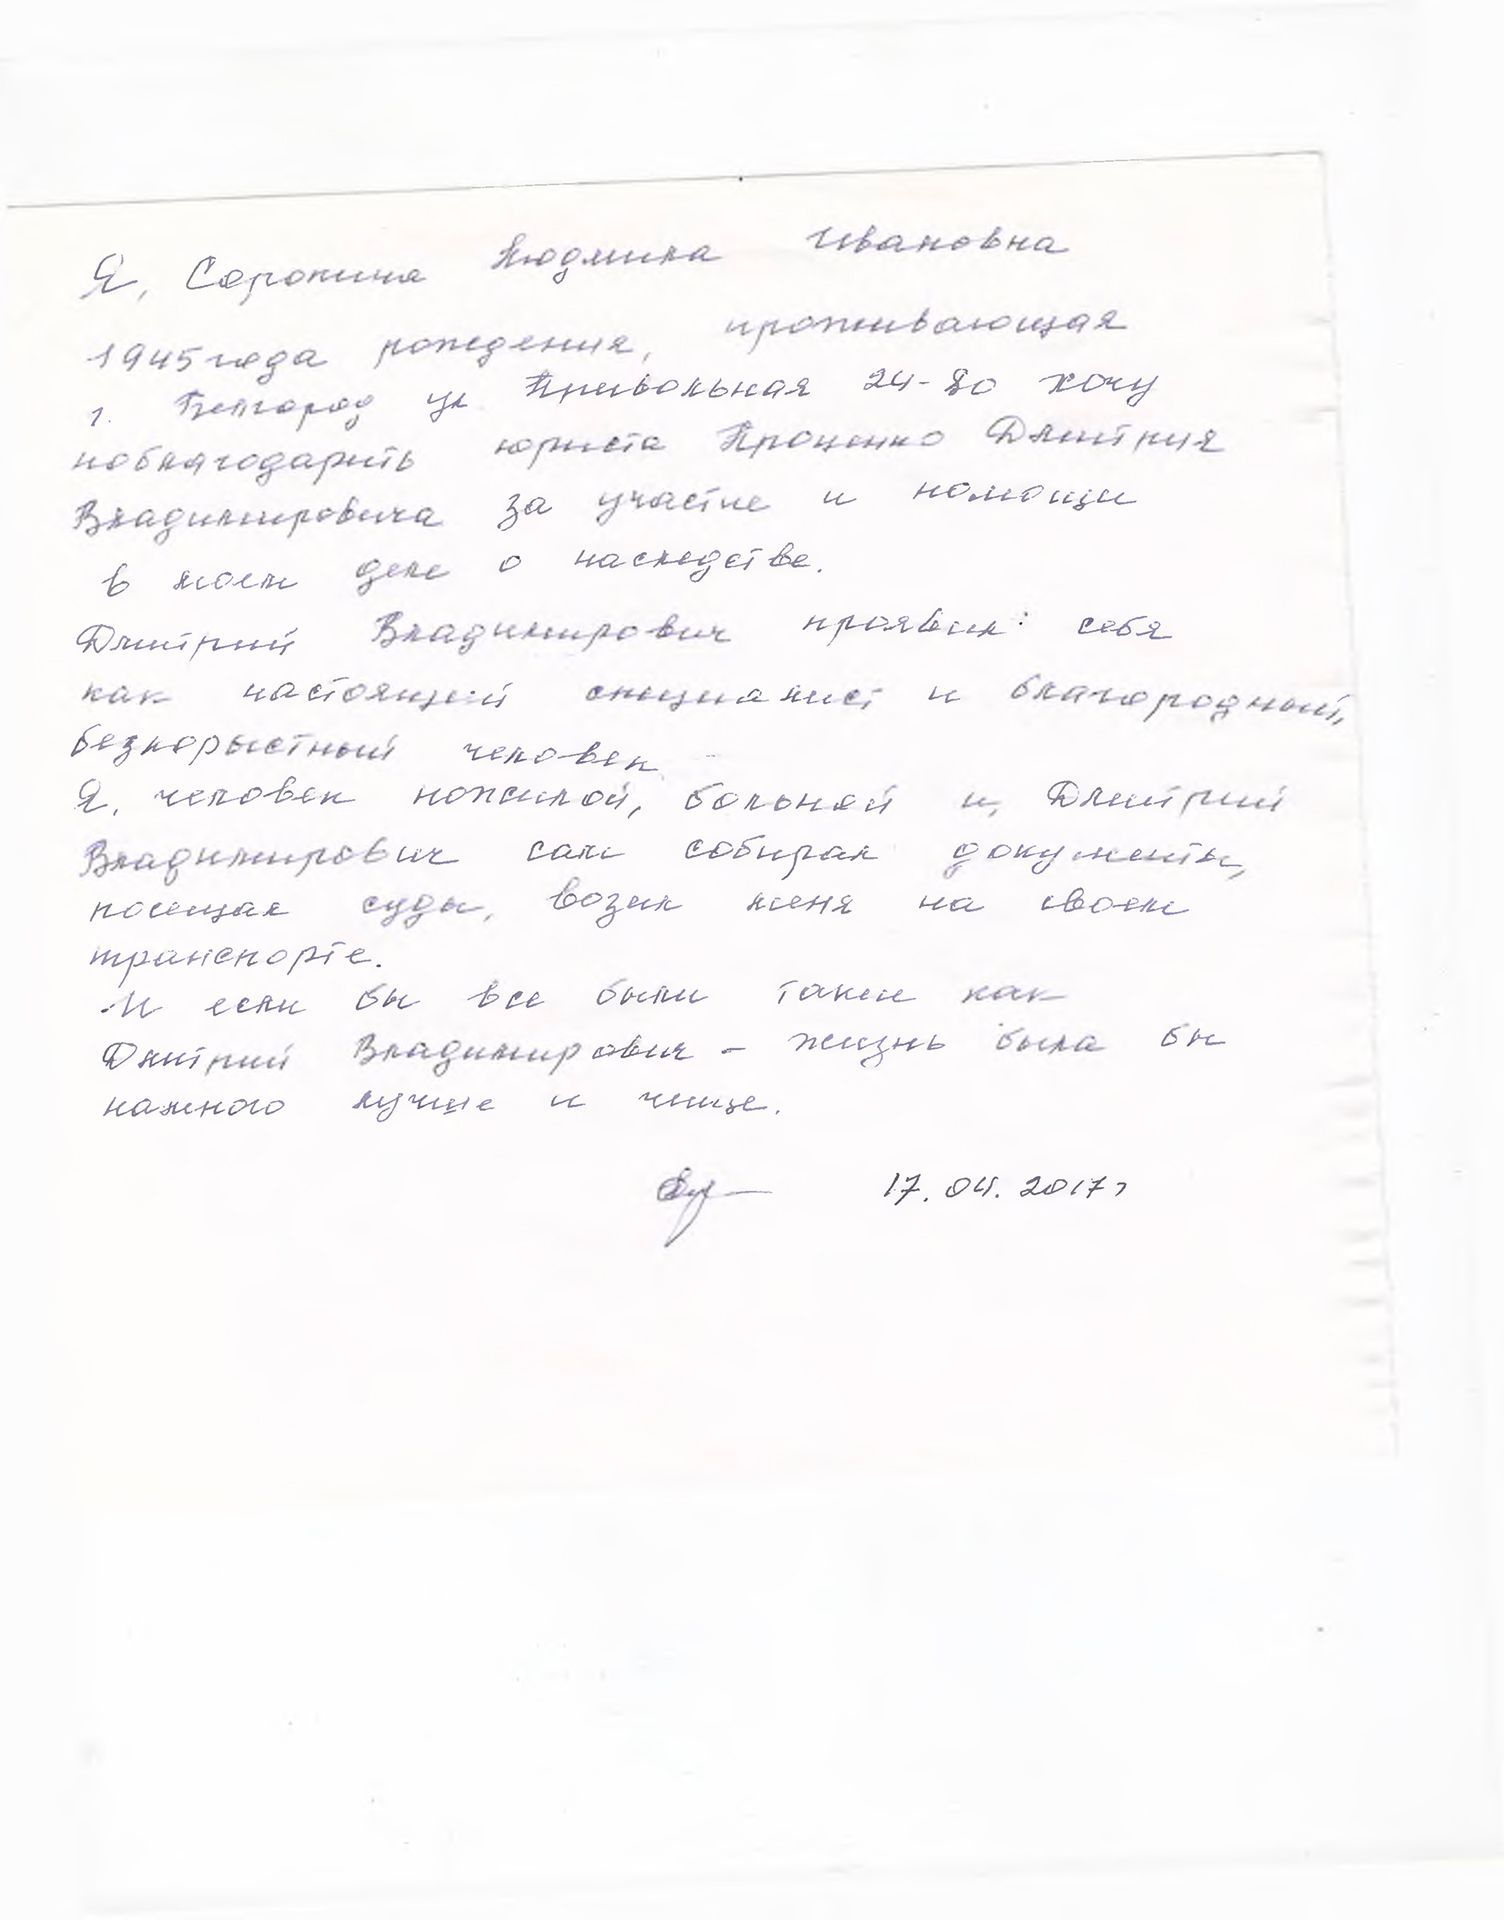 Я, Сорокина Людмила Ивановна
1945 года рождения, проживающая
г. Белгород ул. Привольная 24-80 хочу
поблагодарить юриста Проценко Дмитрия
Владимировича за участие и помощи
в моем деле о наследстве.
Дмитрий Владимирович проявил себя
как настоящий специалист и благородный,
безкорыстный человек
Я, человек пожилой, больной и, Дмитрий
Владимирович сам собирал документы,
посещал суды, возил меня на своем
транспорте.
И если бы все были такие как
Дмитрий Владимирович - жизнь была бы
намного лучше и чище.
17.04.2017г